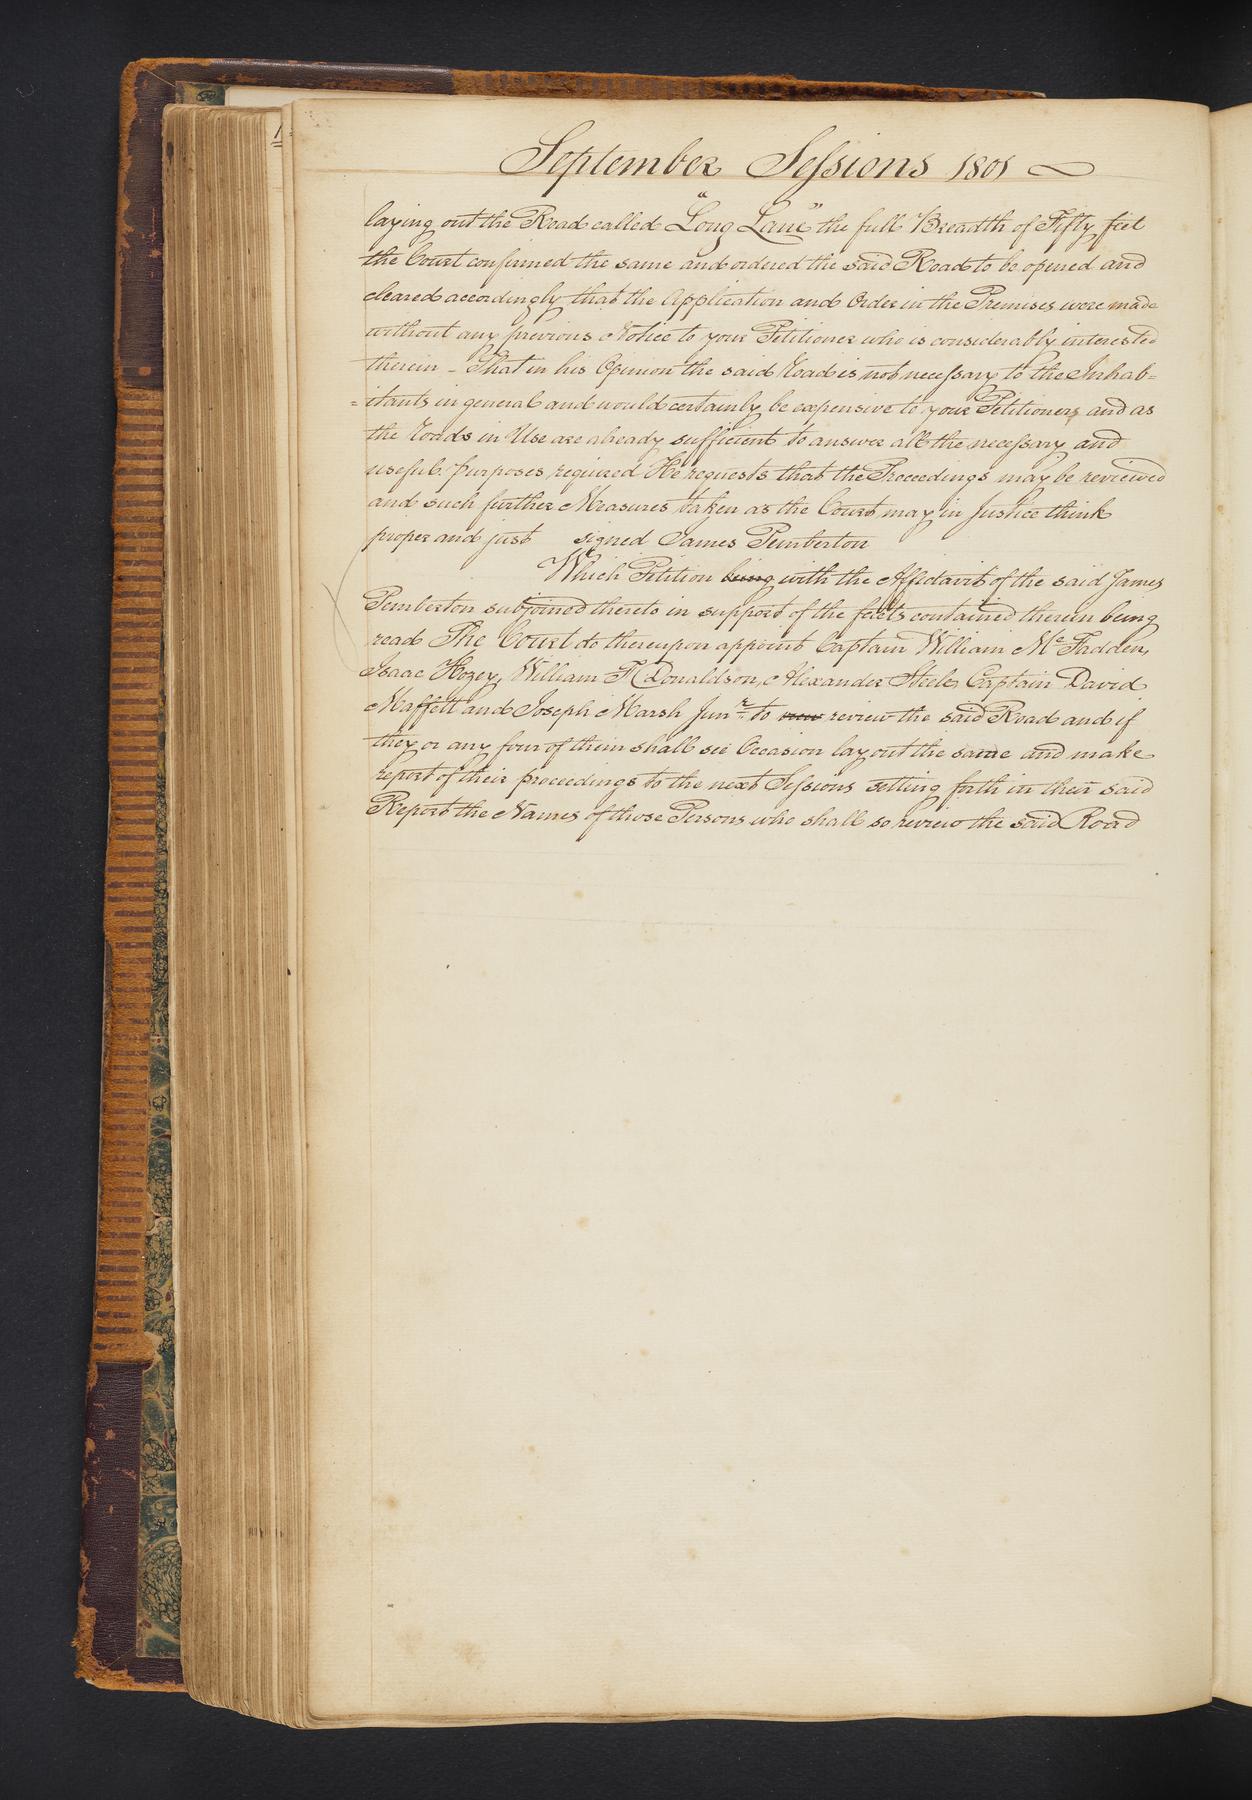 September Sessions 1801
laying out the Road called "Long Lane" the full Breadth of Fifty feet
the Court confirmed the same and ordered the said Road to be opened and
cleared accordingly that the Application and Order in the Premises were made
without any previous Notice to your Petitioner who is considerably interested
therein - That in his Opinion the said Road is not necessary to the Inhab=
=itants in general and would certainly be expensive to your Petitioners and as
the Roads in Use are already sufficient to answer all the necessary and
useful purposes required He requests that the Proceedings may be reviewed
and such further Measures taken as the Court may in Justice think
proper and just signed James Pemberton
Which Petition being with the Affidavit of the said James
Pemberton subjoined thereto in support of the facts contained therein being
read The Court do thereupon appoint Captain William Mc Fadden,
Isaac Hozey, William T Donaldson, Alexander Steele, Captain David
Maffett and Joseph Marsh Junr. to view review the said Road and if
they or any four of them shall see Occasion lay out the same and make
report of their proceedings to the next Sessions setting forth in their said
Report the Names of those Persons who shall so review the said Road